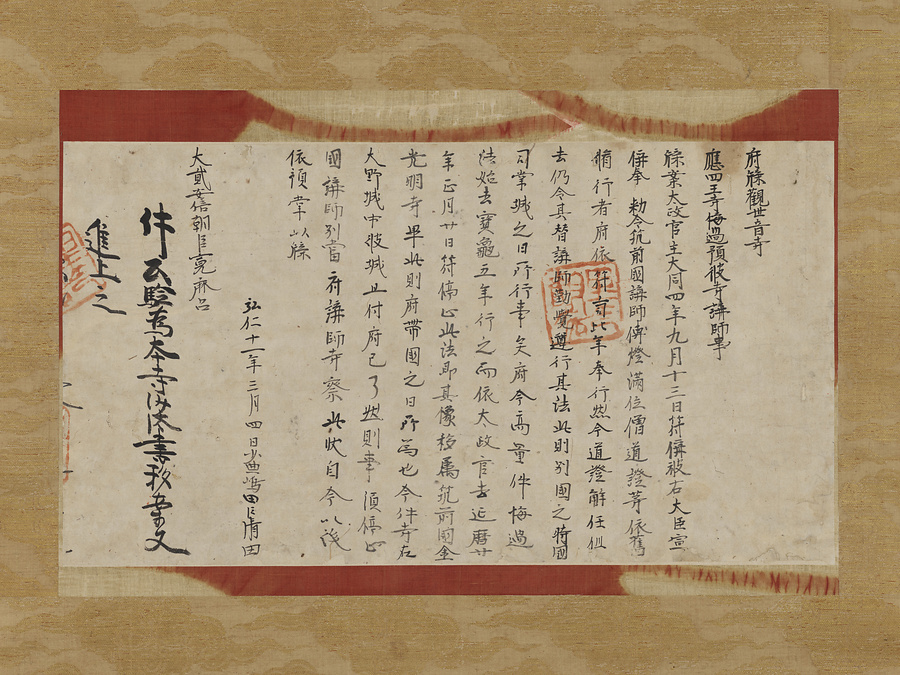 府牒觀世音寺
應四王寺悔過預彼寺講師事
牒案太政官去大同四年九月十三日符偁被右大臣宣
偁奉勅令筑前國講師傳燈滿位僧道證等依舊
脩行者府依符旨比年奉行然今道證解任但
去仍令其替講師勤覺遵行其法此則別國之時國
司掌城之日所行事矣府今商量件悔過
法始去寶龜五年行之而依太政官去延曆廿
年正月廿日符停止此法即其像移属筑前國金
光明寺畢此則府帶國之日所為也今件寺在
大野城中彼城且付府已了然則事須停止
國講師別當府講師寺察此狀自今以後
依預掌以牒
弘仁十一年三月四日少典嶋田臣清田
大貳安倍朝臣寬麻呂
件公驗為本寺沙汰書移案文
進上之